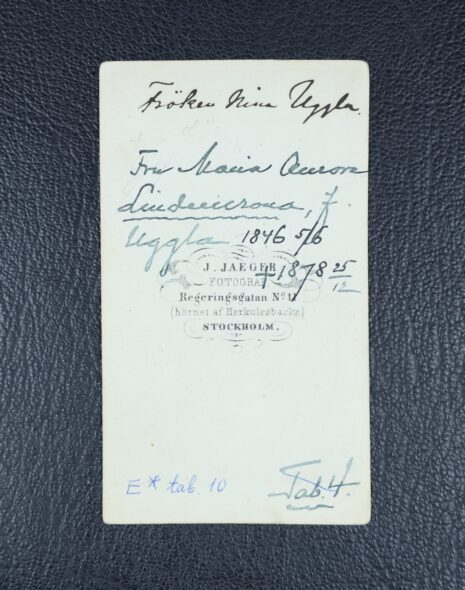 Fröken Nina Uggla.
Fru Maria Aurora
Lindencrona, f.
Uggla 1846 5/6
† 1878 25/12
J. JAEGER
FOTOGRAF
Regeringsgatan No 17
(hörnet af Herkulesbacke)
STOCKHOLM.
E* tab. 10
Tab. 4.